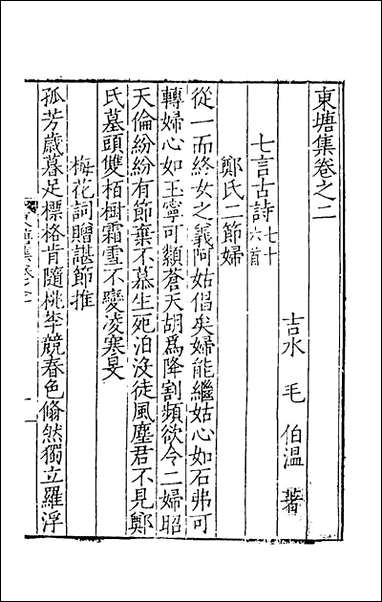 東塘集卷之二
吉水 毛 伯溫 著
七言古詩七十六首
鄭氏二節婦
從一而終女之義阿姑倡矣婦能繼姑心如石弗可
轉婦心如玉寧可纇蒼天胡爲降割頻欲令二婦昭
天倫紛紛有節棄不慕生死汨没徒風塵君不見鄭
氏墓頭雙栢樹霜雪不變凌寒旻
梅花詞贈諶節推
孤芳歲暮足標格肯隨桃李競春色翛然獨立羅浮